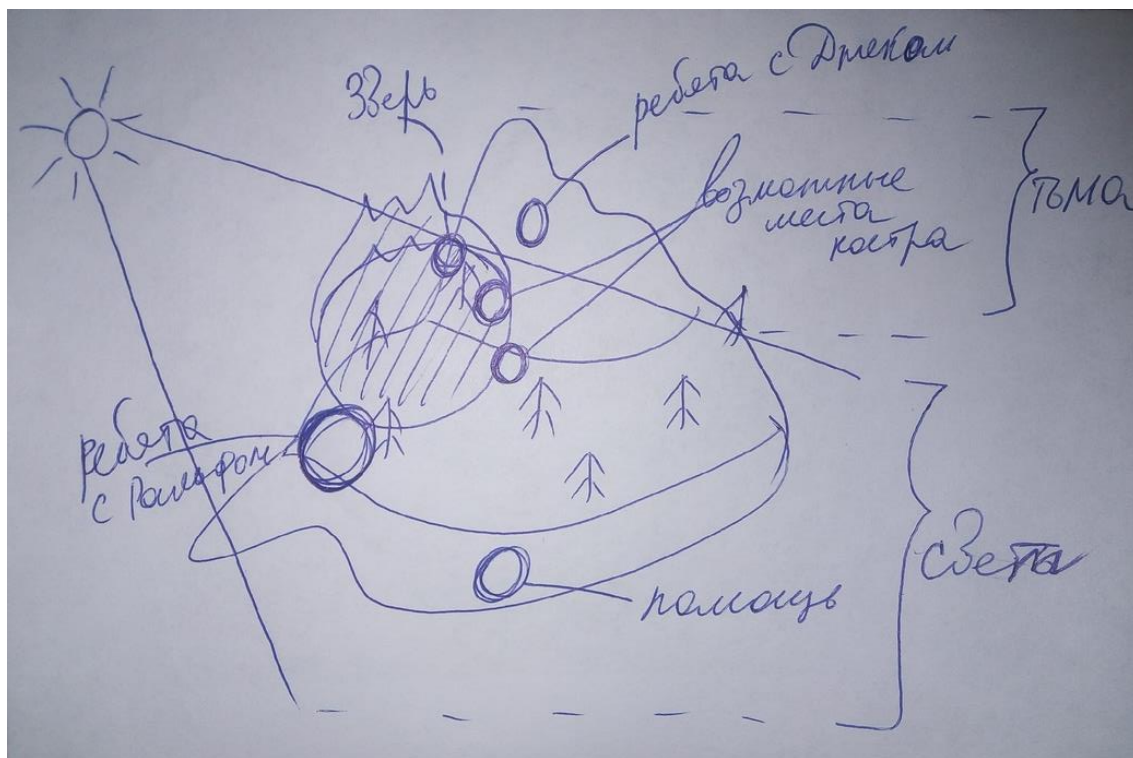 Зверь
ребята с Джеком
возможные
места
костра
тьма
ребята
с Ральфом
света
помощь